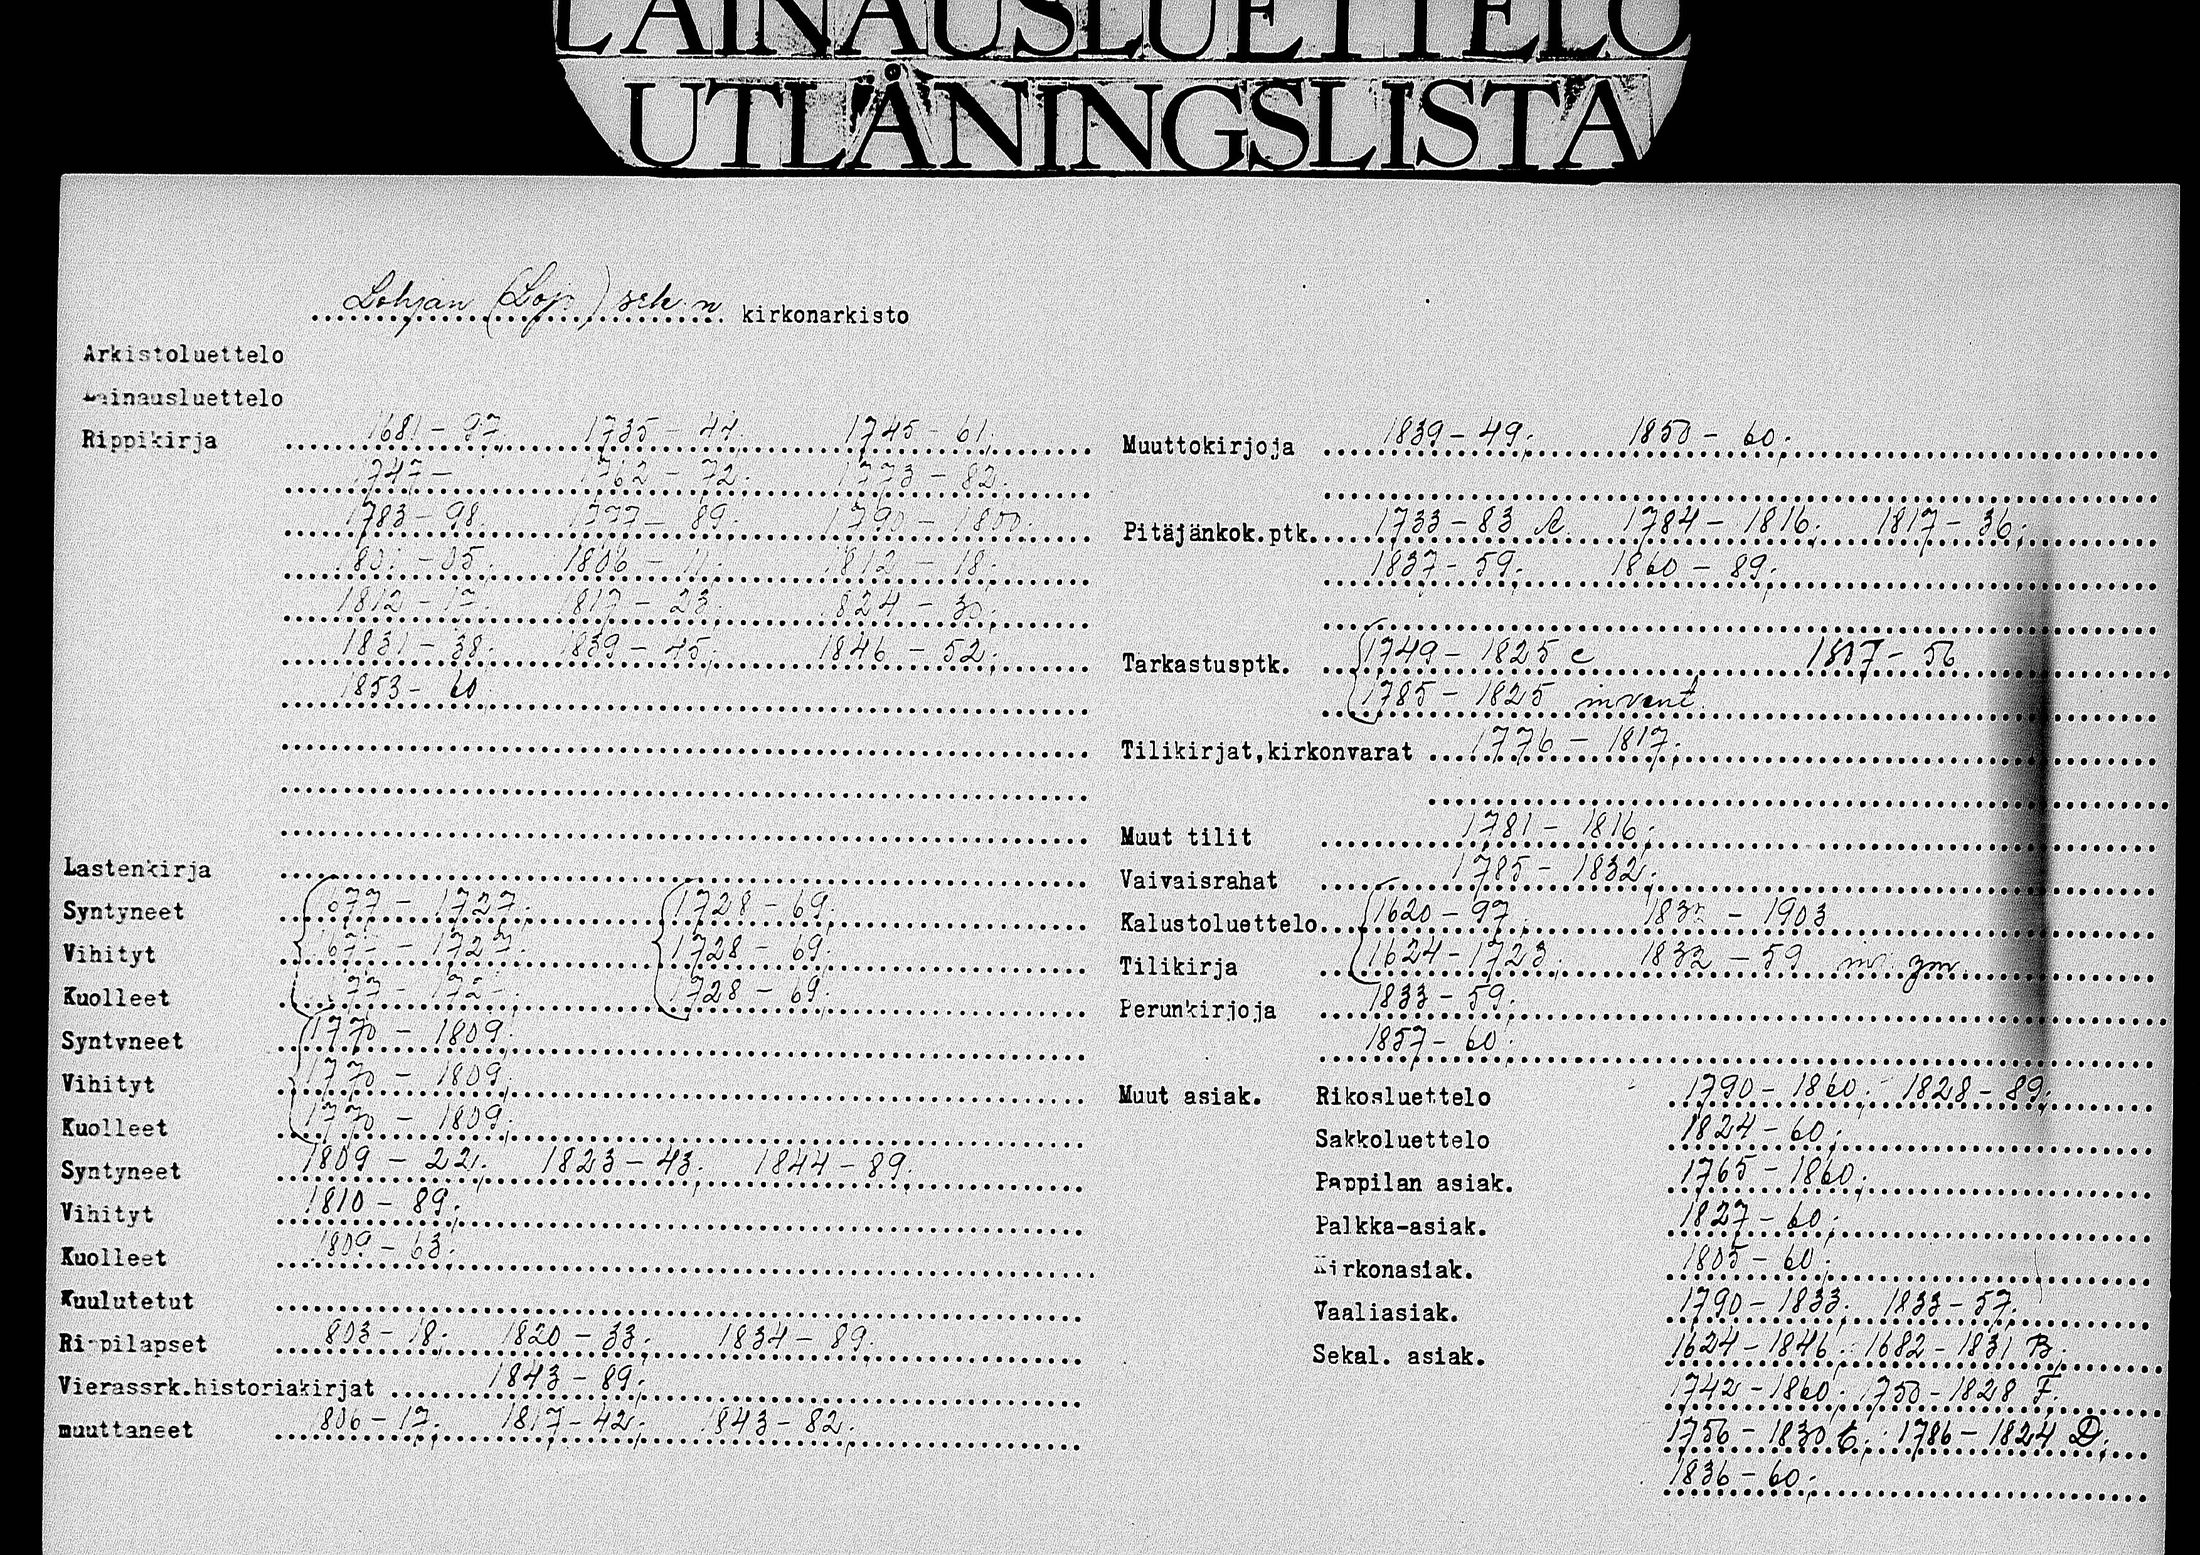 LAINAUSLUETTELO
UTLÅNINGSLISTA
Lohjan (Lojo) srk:n kirkonarkisto
Arkistoluettelo
Lainausluettelo
Rippikirja 1681-97. 1735-44. 1745-61;
1747- 1762-72. 1773-82.
1783-98. 1777-89. 1790-1800.
1801-05. 1806-11. 1812-18;
1812-17. 1817-23. 1824-30;
1831-38. 1839-45; 1846-52;
1853-60.
Lastenkirja
Syntyneet 1677-1727; 1728-69;
Vihityt 1677-1727. 1728-69.
Kuolleet 1728-69.
Syntyneet 1770-1809.
Vihityt 1770-1809;
Kuolleet 1770-1809;
Syntyneet 1809-22; 1823-43; 1844-89;
Vihityt 1810-89;
Kuolleet 1809-63;
Kuulutetut
Rippilapset 803-18; 1820-33; 1834-89;
Vierassrk.historiakirjat 1843-89;
muuttaneet 806-17; 1817-42; 1843-82;
Muuttokirjoja 1839-49; 1850-60;
Pitäjänkok.ptk. 1733-83 1784-1816; 1817-36;
1837-59; 1860-89;
Tarkastusptk. 1749-1825 c 1807-56
1785-1825 invent.
Tilikirjat,kirkonvarat 1776-1817;
Muut tilit 1781-1816;
Vaivaisrahat 1785-1832;
Kalustoluettelo 1620-97; 1832-1903
Tilikirja 1624-1723; 1832-59
Perunkirjoja 1833-59;
1857-60;
Muut asiak. Rikosluettelo 1790-1860; 1828-89;
Sakkoluettelo 1824-60;
Pappilan asiak. 1765-1860;
Palkka-asiak. 1827-60;
Kirkonasiak. 1805-60;
Vaaliasiak. 1790-1833; 1833-57;
Sekal. asiak. 1624-1846; 1682-1831 B;
1742-1860; 1750-1828 F.
1756-1830 C; 1786-1824 D;
1836-60;